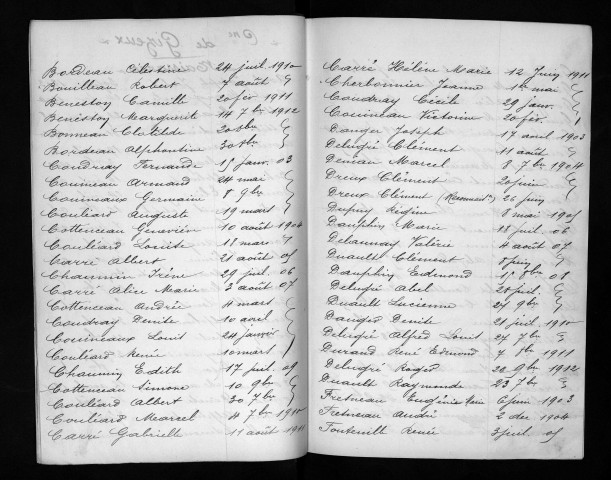 Bordeau Célestine 24 juil. 1910
Bouilleau Robert 7 août
Beneston Camille 20 fév. 1911
Beneston Marguerite 14 7bre 1912
Bonneau Clotilde
Bordeau Alphontine
Coudray Fernande 15 janv. 03
Couineau Armand 24 mai
Couineaux Germaine 8 9bre
Couléard Auguste 19 mars
Cottenceau Geneviève 10 août 1904
Couléard Louise 18 mars
Carré Albert 21 août 05
Chaumin Irène 29 juil. 06
Carré Alice Marie 3 août 07
Cottenceau Andrée 4 mars
Coudray Denise 10 avril
Couineaux Louis 24 janvier
Couléard Renée 10 mars
Chaumin Edith 17 juil. 09
Cottenceau Simone 10 9bre
Couléard Albert 30 7bre
Couléard Marcel 4 7bre 1910
Carré Gabrielle 11 août 1911
Carré Hélène Marie 12 Juin 1911
Cherbonnier Jeanne 1er mai
Coudray Cécile 29 janv.
Couineau Victorine 20 fév.
Danger Joseph 17 avril 1903
Delugré Clément 11 août
Deniau Marcel 8 7bre 1904
Dreux Clément 20 juin
Dreux Clément 26 juin
Dupuy Régina 8 mai 1905
Dauphin Marie 18 juil. 06
Delaunay Valérie 4 août 07
Duault Clément 8 juin
Dauphin Edmond 15 8bre 08
Delugré Abel 20 juil.
Duault Lucienne 27 9bre
Danger Denise 21 juil. 1910
Delugré Alfred Louis 24 7bre
Durand René Edmond 7 8bre 1911
Delugré Roger 22 9bre 1912
Duault Raymonde 23 7bre
Fresneau Eugénie 6 juin 1903
Fresneau André 2 déc. 1904
Fontenille Renée 3 juil. 05